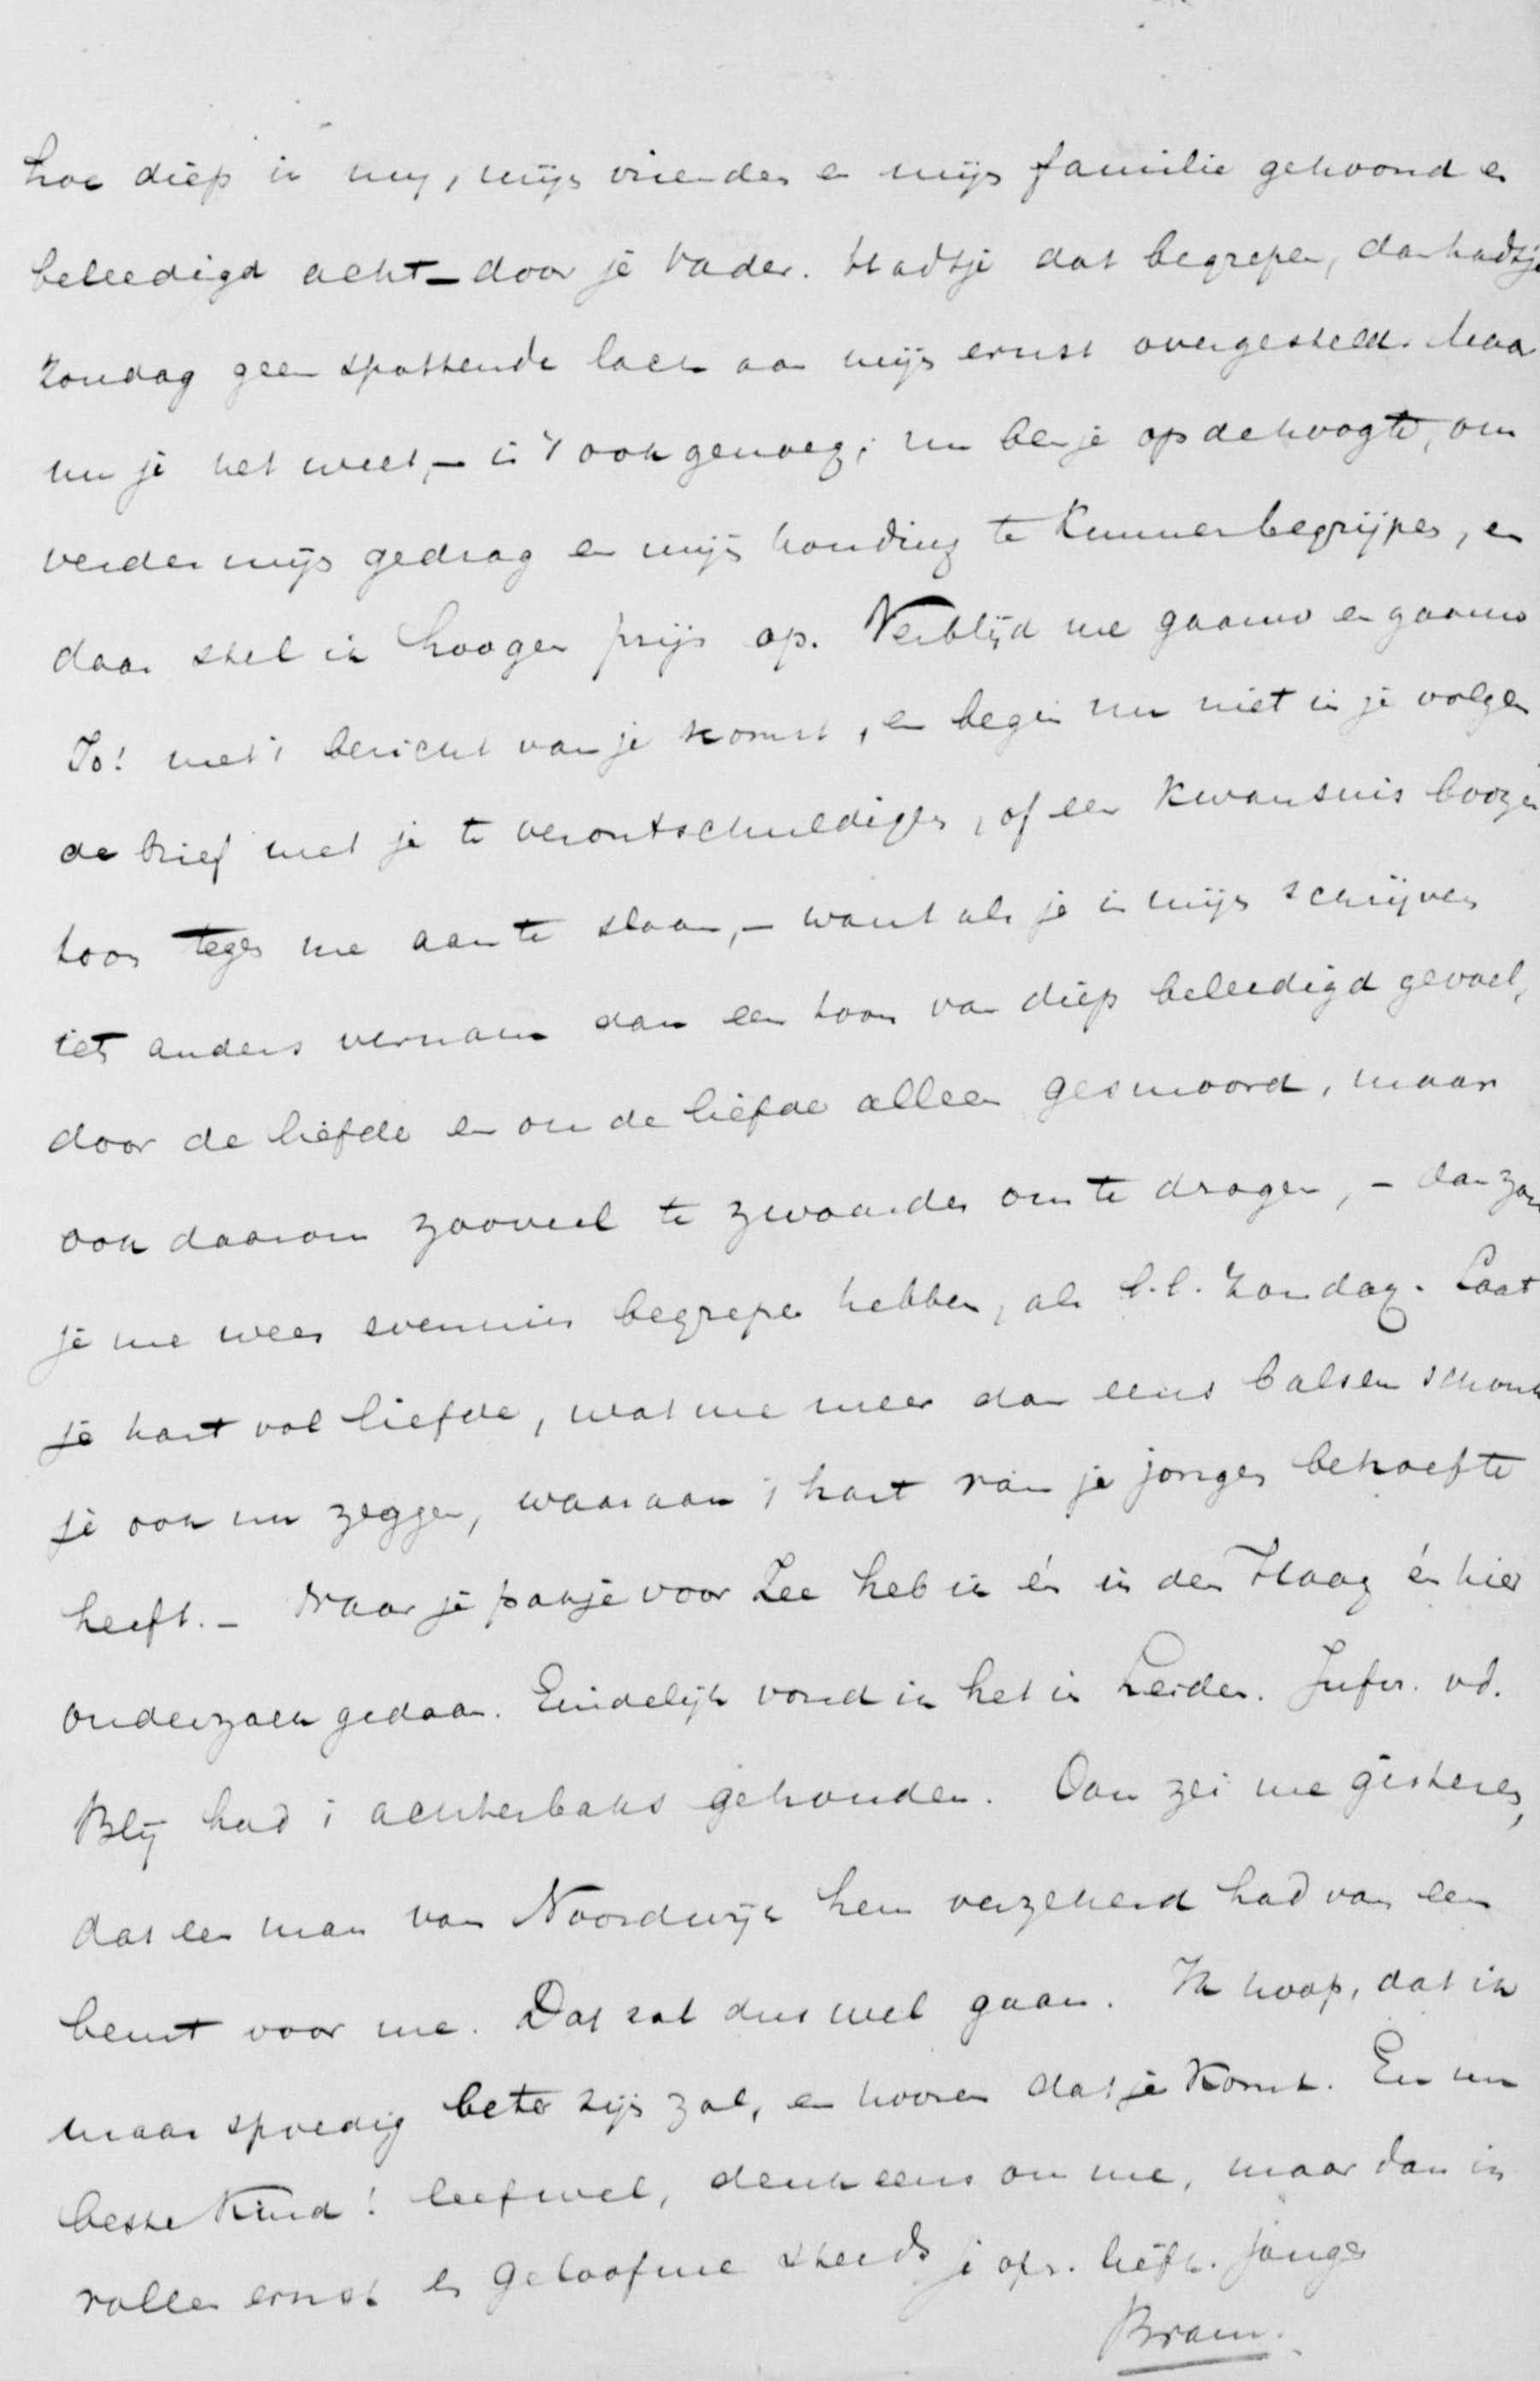 hoe diep ik mij, mijn vrienden en mijn familie gehoond en
beleedigd acht – door je vader. Hadtje dat begrepen, dan hadtje
Zondag geen spottende lach aan mijn ernst overgesteld. Maar
nu je het weet, – is 't ook genoeg; nu ben je op de hoogte, om
verder mijn gedrag en mijn houding te kunnen begrijpen, en
daar stel ik hoogen prijs op. Verblijd me gaauw en gaauw
Jo! met 't bericht van je komst, en begin nu niet in je volgen
de brief met je te verontschuldigen, of een kwansuis boozen
toon tegen me aan te slaan, – want als je in mijn schrijven
iets anders vernam dan een toon van diep beleedigd gevoel,
door de liefde en om de liefde alleen gesmoord, maar
ook daarom zooveel te zwaarder om te dragen, – dan zou
je me weer evenmin begrepen hebben, als l.l. Zondag. Laat
je hart vol liefde, wat me meer dan eens balsem schonk
je ook nu zeggen, waaraan 't hart van je jongen behoefte
heeft. – Naar je pakje voor Zee heb ik én in den Haag én hier
onderzoek gedaan. Eindelijk vond ik het in Leiden. Jufvr. vd.
Blij had 't achterbaks gehouden. Oom zei me gisteren,
dat een man van Noordwijk hem verzekerd had van een
beurt voor me. Dat zal dus wel gaan. Ik hoop, dat ik
maar spoedig beter zijn zal, en hooren dat je komt. En nu
beste Kind! leefwel, denk eens om me, maar dan in
vollen ernst en geloof me steeds je opr. liefh. jongen
Bram.